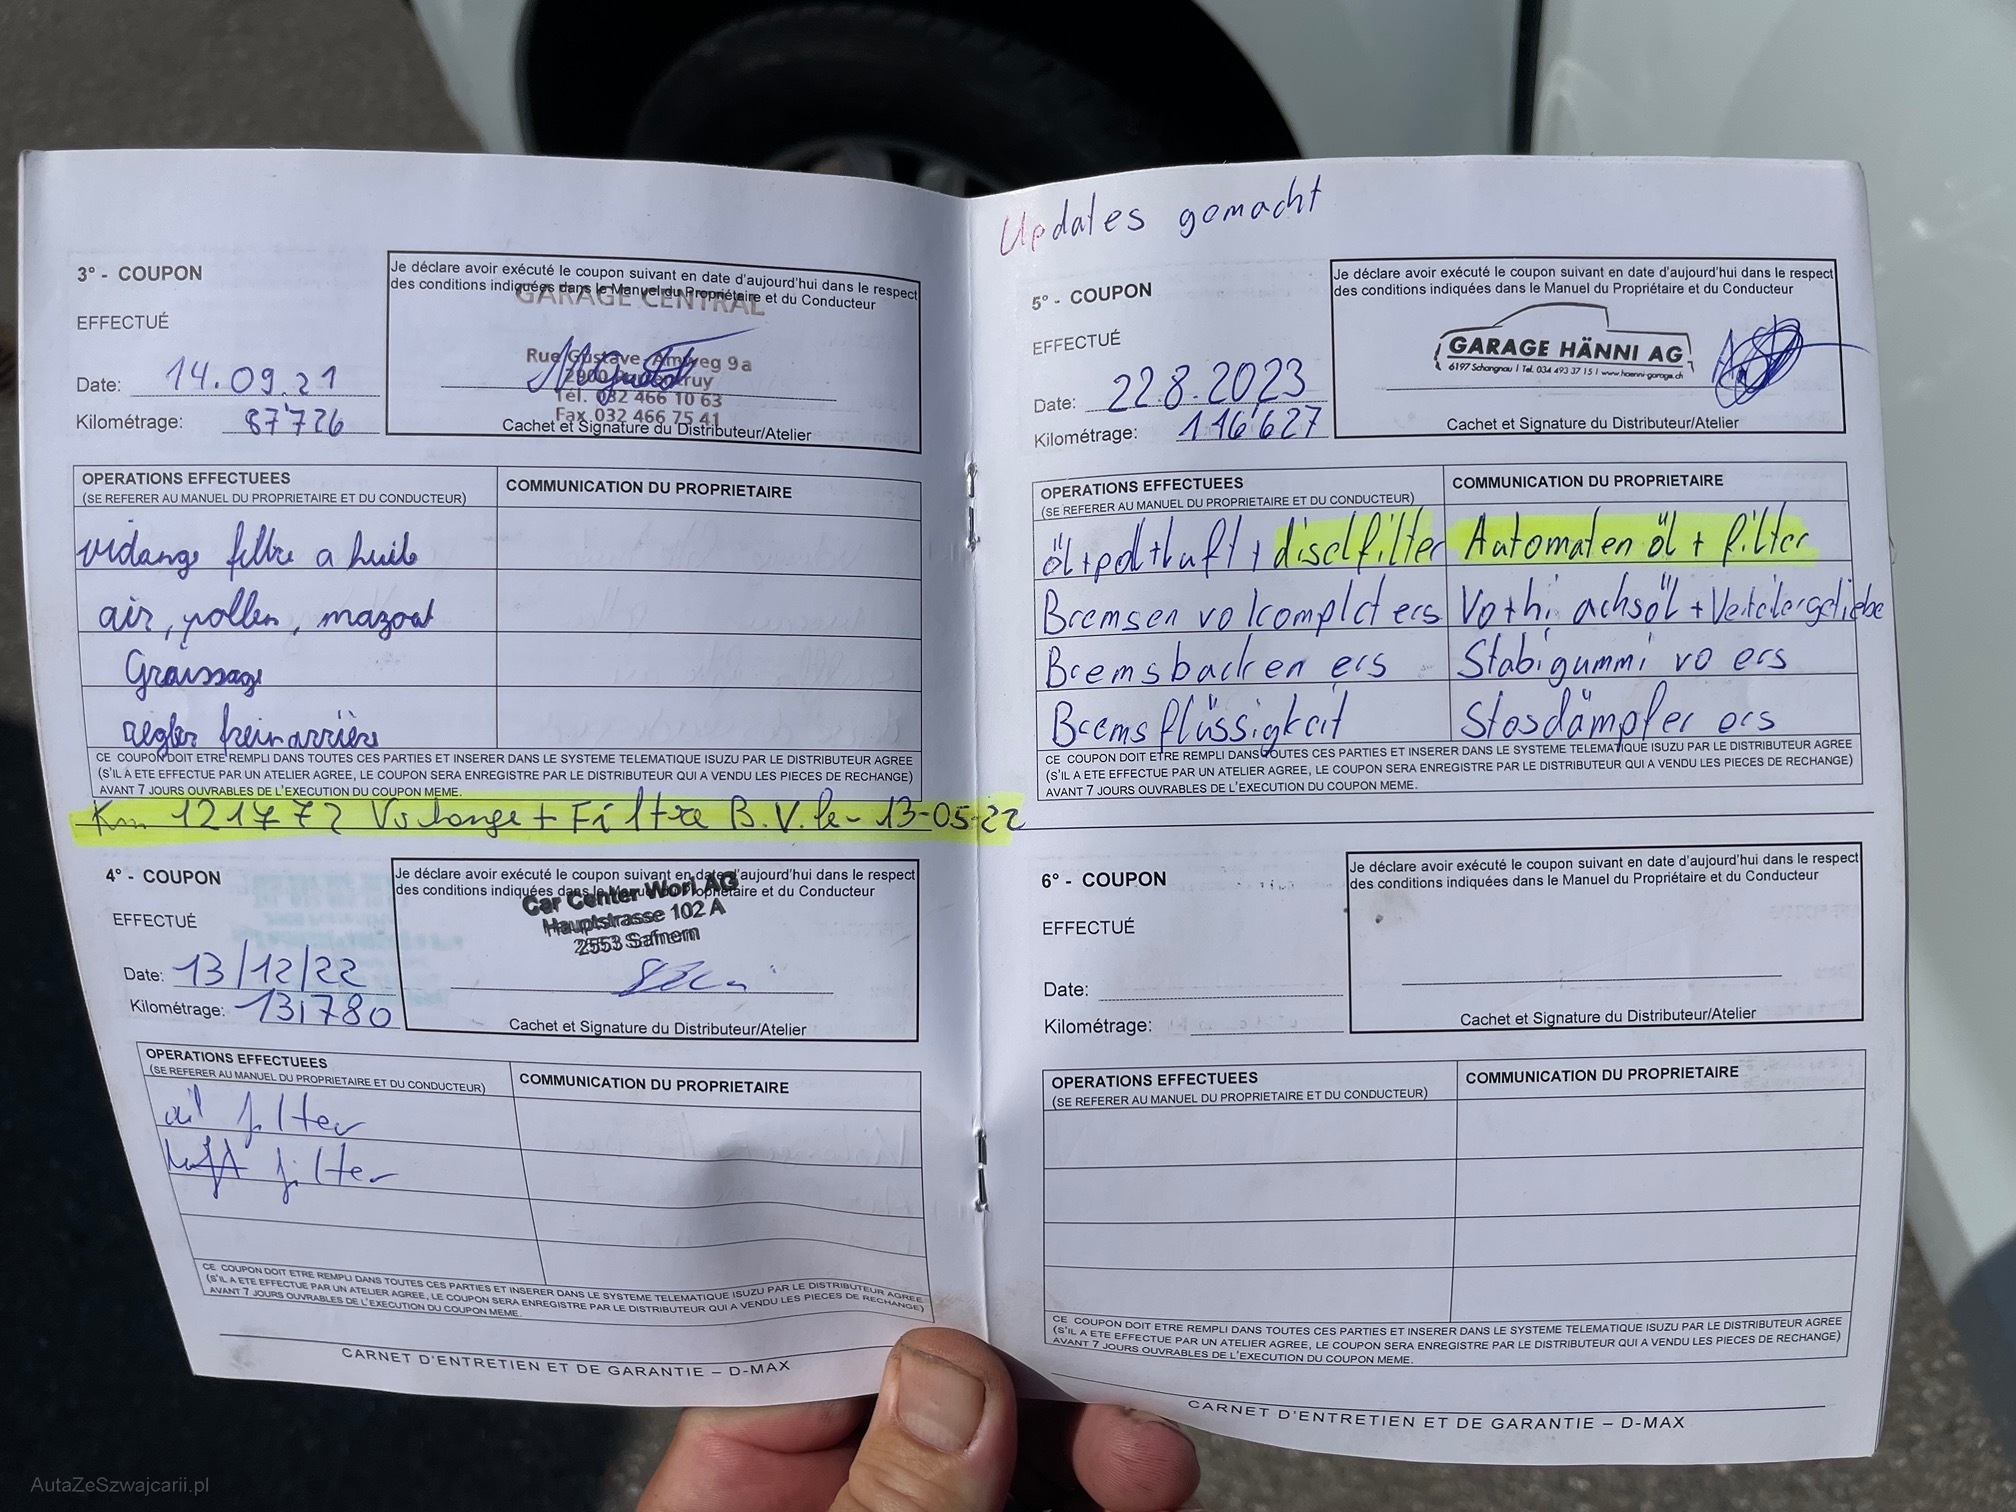 3° - COUPON
EFFECTUÉ
Date: 14.09.21
Kilométrage: 87'726
Je déclare avoir exécuté le coupon suivant en date d'aujourd'hui dans le respect
des conditions indiquées dans le Manuel du Propriétaire et du Conducteur
GARAGE CENTRAL
Rue Gustave Amweg 9a
Tél. 032 466 10 63
Fax 032 466 75 41
Cachet et Signature du Distributeur/Atelier
OPERATIONS EFFECTUEES
(SE REFERER AU MANUEL DU PROPRIETAIRE ET DU CONDUCTEUR)
COMMUNICATION DU PROPRIETAIRE
vidange filtre a huile
air, pollen, mazout
Graissage
régler frein arrière
CE COUPON DOIT ETRE REMPLI DANS TOUTES CES PARTIES ET INSERER DANS LE SYSTEME TELEMATIQUE ISUZU PAR LE DISTRIBUTEUR AGREE
(S'IL A ETE EFFECTUE PAR UN ATELIER AGREE, LE COUPON SERA ENREGISTRE PAR LE DISTRIBUTEUR QUI A VENDU LES PIECES DE RECHANGE)
AVANT 7 JOURS OUVRABLES DE L'EXECUTION DU COUPON MEME.
Km 121772 + Filtre B.V. le - 13-05-22
4° - COUPON
EFFECTUÉ
Date: 13/12/22
Kilométrage: 131780
Je déclare avoir exécuté le coupon suivant en date d'aujourd'hui dans le respect
des conditions indiquées dans le Manuel du Propriétaire et du Conducteur
Car Center Worl AG
Hauptstrasse 102 A
2553 Safnern
Cachet et Signature du Distributeur/Atelier
OPERATIONS EFFECTUEES
(SE REFERER AU MANUEL DU PROPRIETAIRE ET DU CONDUCTEUR)
COMMUNICATION DU PROPRIETAIRE
oil filter
luft filter
CE COUPON DOIT ETRE REMPLI DANS TOUTES CES PARTIES ET INSERER DANS LE SYSTEME TELEMATIQUE ISUZU PAR LE DISTRIBUTEUR AGREE
(S'IL A ETE EFFECTUE PAR UN ATELIER AGREE, LE COUPON SERA ENREGISTRE PAR LE DISTRIBUTEUR QUI A VENDU LES PIECES DE RECHANGE)
AVANT 7 JOURS OUVRABLES DE L'EXECUTION DU COUPON MEME.
CARNET D'ENTRETIEN ET DE GARANTIE – D-MAX
Updates gemacht
5° - COUPON
EFFECTUÉ
Date: 22.8.2023
Kilométrage: 146'627
Je déclare avoir exécuté le coupon suivant en date d'aujourd'hui dans le respect
des conditions indiquées dans le Manuel du Propriétaire et du Conducteur
GARAGE HÄNNI AG
6197 Schangnau | Tel. 034 493 37 15 | www.haenni-garage.ch
Cachet et Signature du Distributeur/Atelier
OPERATIONS EFFECTUEES
(SE REFERER AU MANUEL DU PROPRIETAIRE ET DU CONDUCTEUR)
COMMUNICATION DU PROPRIETAIRE
öl+poll+luft + diselfilter Automaten öl + filter
Bremsen vo komplet ers Vo+hi achsöl + Verteilergetiebe
Bremsbacken ers Stabigummi vo ers
Bremsflüssigkeit Stosdämpfer ers
CE COUPON DOIT ETRE REMPLI DANS TOUTES CES PARTIES ET INSERER DANS LE SYSTEME TELEMATIQUE ISUZU PAR LE DISTRIBUTEUR AGREE
(S'IL A ETE EFFECTUE PAR UN ATELIER AGREE, LE COUPON SERA ENREGISTRE PAR LE DISTRIBUTEUR QUI A VENDU LES PIECES DE RECHANGE)
AVANT 7 JOURS OUVRABLES DE L'EXECUTION DU COUPON MEME.
6° - COUPON
EFFECTUÉ
Date:
Kilométrage:
Je déclare avoir exécuté le coupon suivant en date d'aujourd'hui dans le respect
des conditions indiquées dans le Manuel du Propriétaire et du Conducteur
Cachet et Signature du Distributeur/Atelier
OPERATIONS EFFECTUEES
(SE REFERER AU MANUEL DU PROPRIETAIRE ET DU CONDUCTEUR)
COMMUNICATION DU PROPRIETAIRE
CE COUPON DOIT ETRE REMPLI DANS TOUTES CES PARTIES ET INSERER DANS LE SYSTEME TELEMATIQUE ISUZU PAR LE DISTRIBUTEUR AGREE
(S'IL A ETE EFFECTUE PAR UN ATELIER AGREE, LE COUPON SERA ENREGISTRE PAR LE DISTRIBUTEUR QUI A VENDU LES PIECES DE RECHANGE)
AVANT 7 JOURS OUVRABLES DE L'EXECUTION DU COUPON MEME.
CARNET D'ENTRETIEN ET DE GARANTIE – D-MAX
AutaZeSzwajcarii.pl